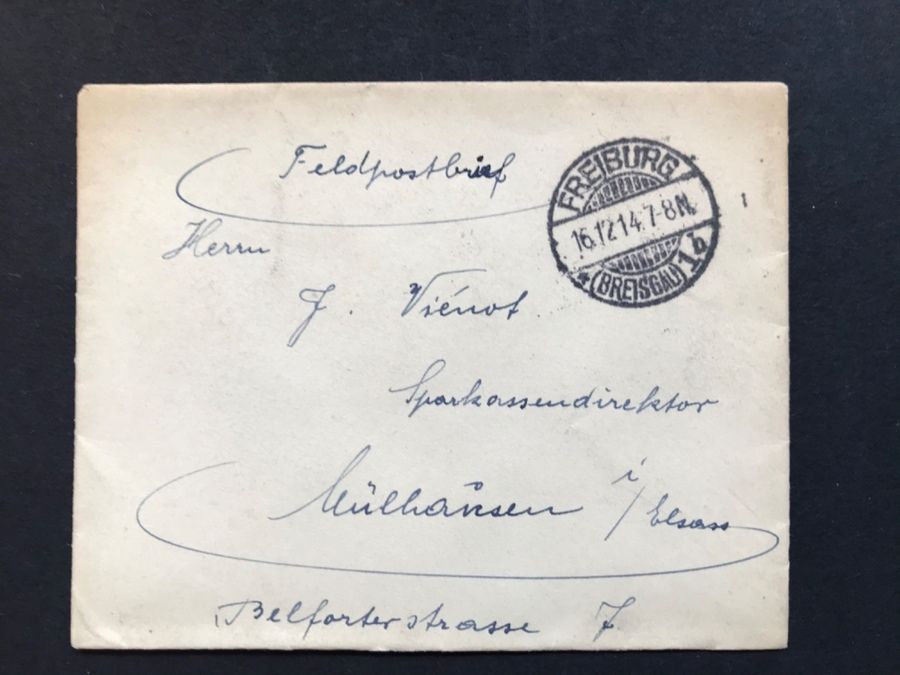 Feldpostbrief
FREIBURG
16.12.14.7-8N.
* (BREISGAU) 1b
Herrn
J. Viénot.
Sparkassendirektor
Mülhausen i/Elsass
Belforterstrasse 7.